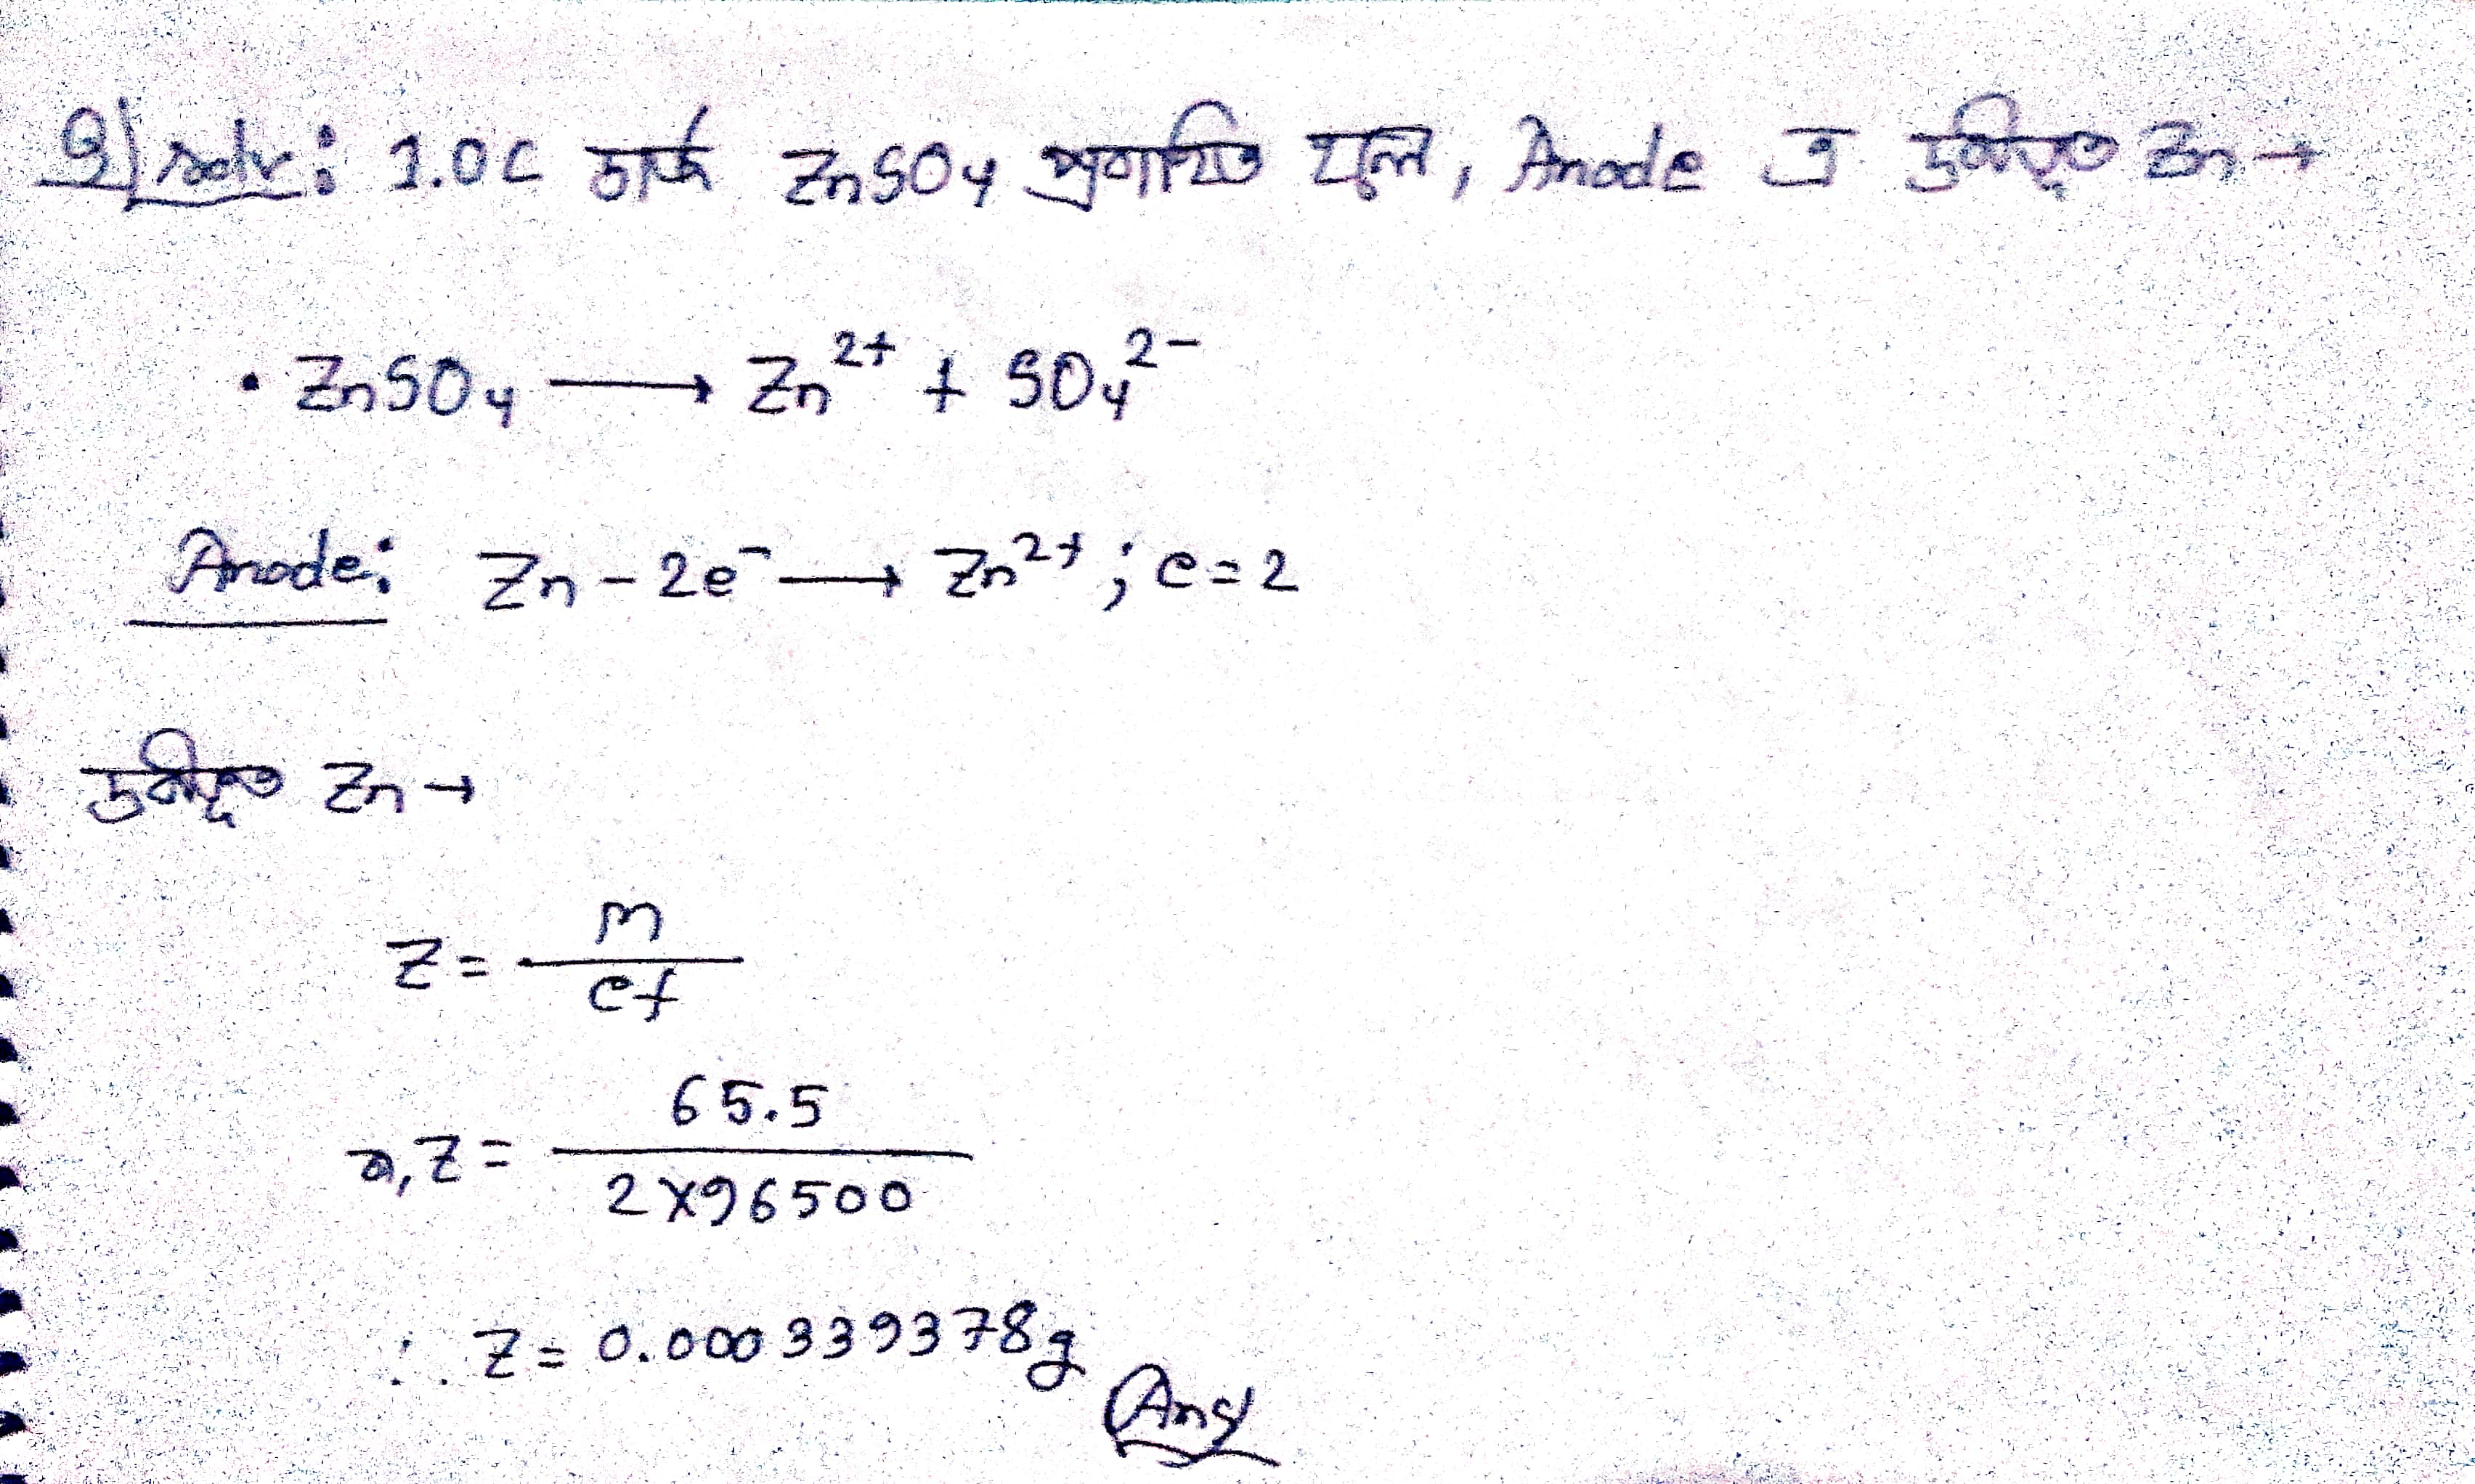 ২| solv: 1.0C চার্জ ZnSO₄ প্রবাহিত হলে, Anode এ দ্রবীভূত Zn →
• ZnSO₄ ⟶ Zn²⁺ + SO₄²⁻
Anode: Zn - 2e⁻ ⟶ Zn²⁺ ; e = 2
দ্রবীভূত Zn →
Z = m / ef
বা, Z = 65.5 / 2×96500
∴ Z = 0.000339378g (Ans)